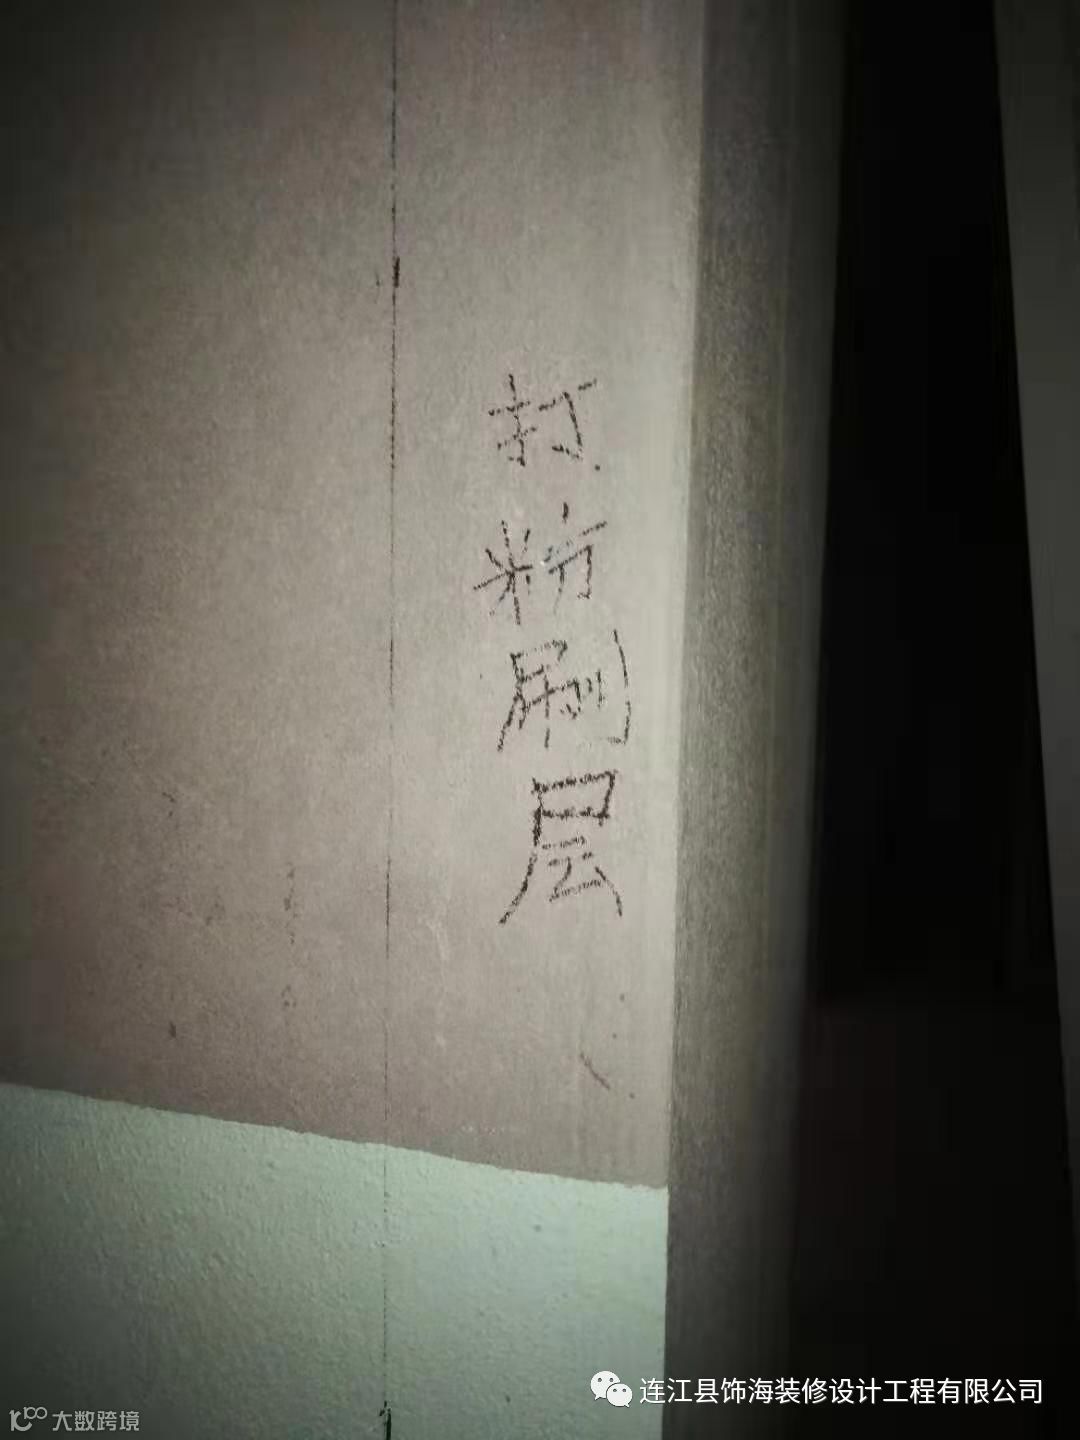 打粉刷层
连江县饰海装修设计工程有限公司
大数跨境